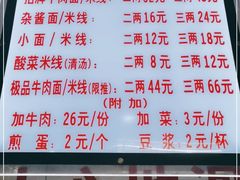 招牌牛肉面/米线 二两32元 三两48元
杂酱面/米线 二两16元 三两24元
小面/米线 二两12元 三两18元
酸菜米线(清汤) 二两8元 三两12元
极品牛肉面/米线(限推) 二两44元 三两66元
(附加)
加牛肉:26元/份 加菜:3元/份
煎蛋:2元/个 豆浆:2元/杯